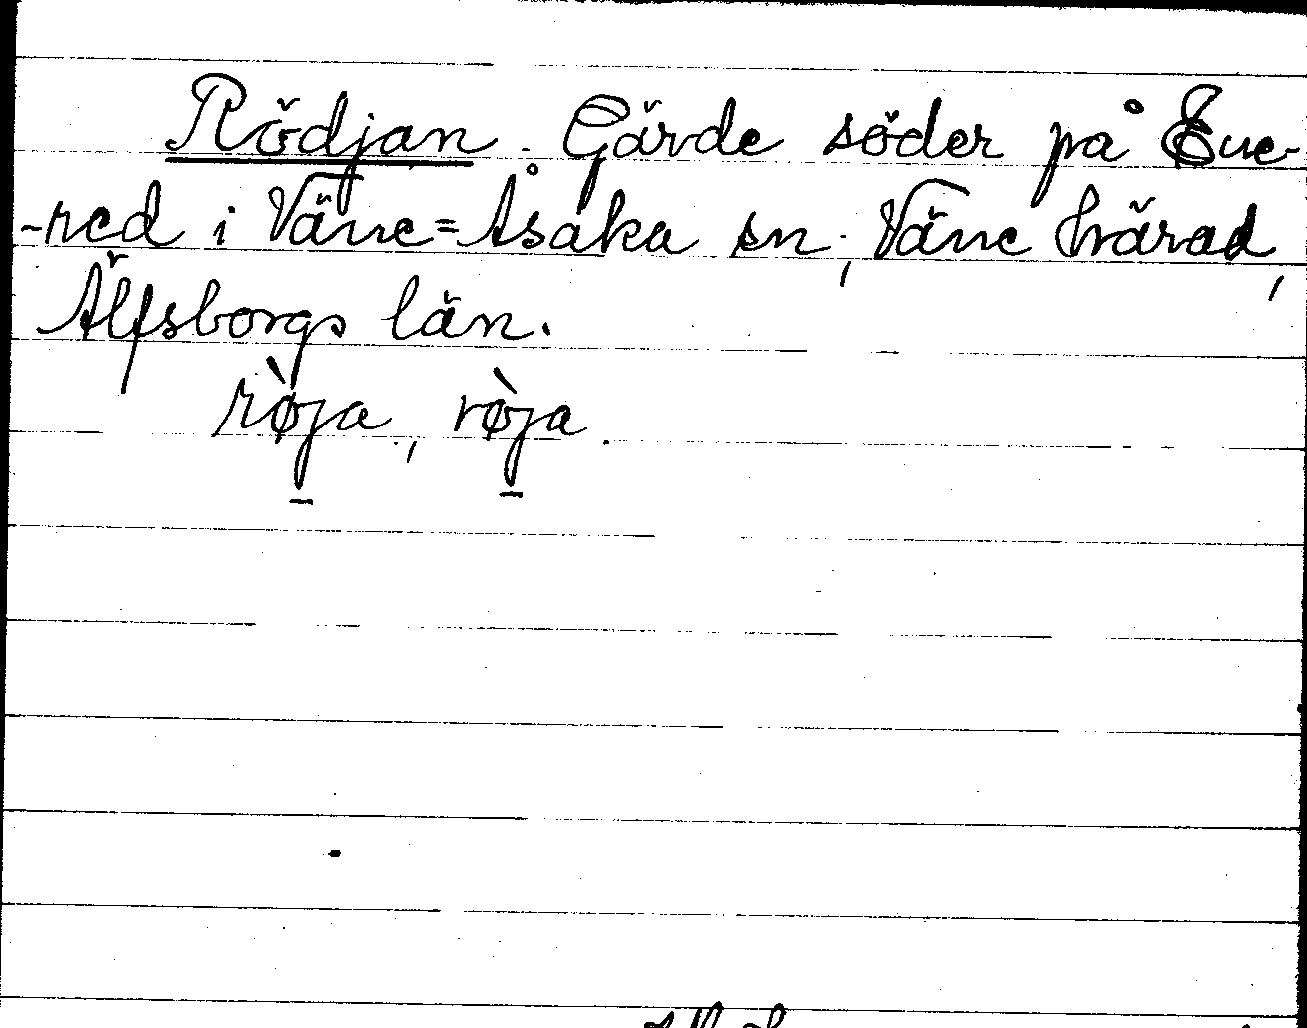 Rödjan. Gärde söder på Ene-
-red i Väne=Åsaka sn, Väne härad,
Älfsborgs län.
rø̀ja, rø̀ja.